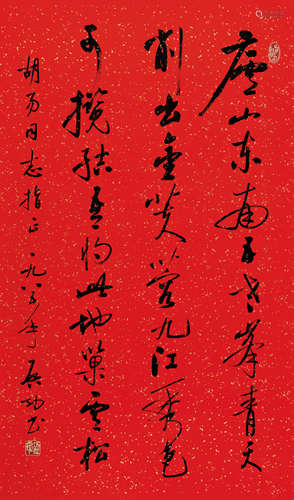 庐山东南五老峰青天
削出金芙蓉九江秀色
可揽结吾将此地巢云松
胡为同志指正一九八五年启功书